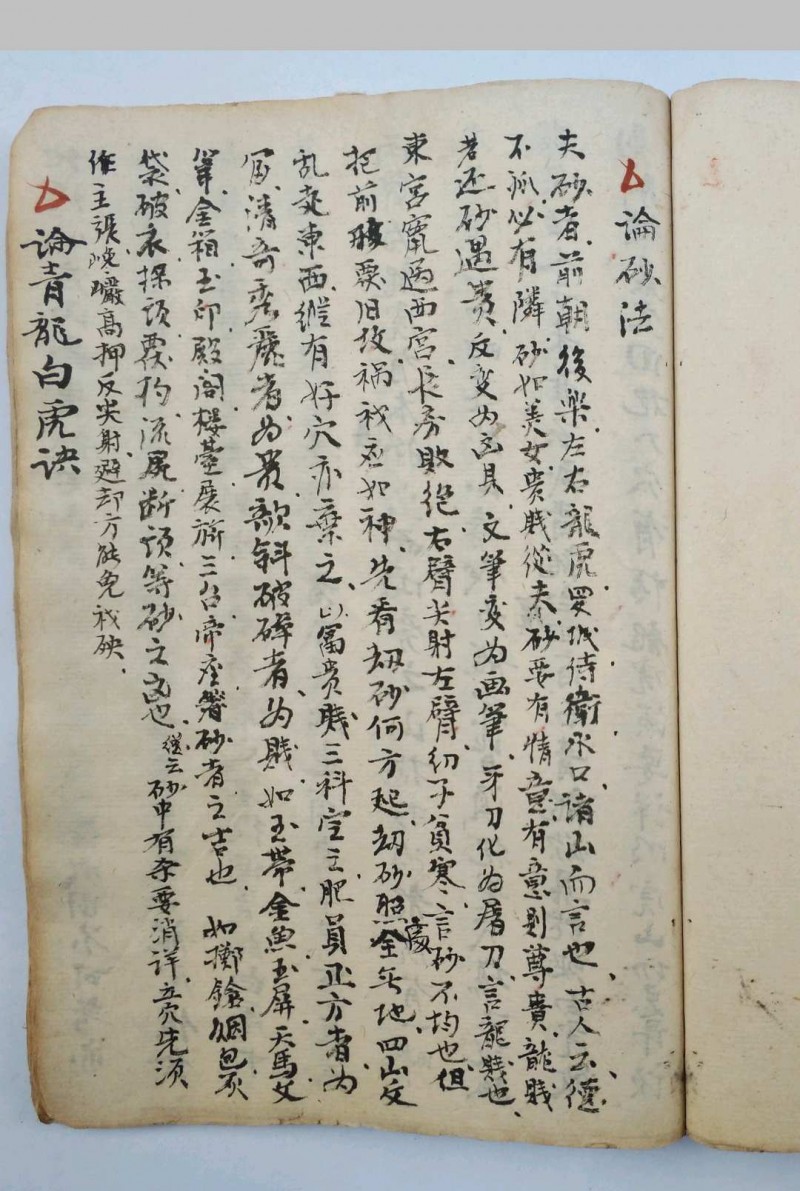 論砂法
夫砂者前朝後樂左右龍虎罗城侍衛水口諸山而言也古人云德
不孤必有隣砂如美女贵賎從夫砂要有情意有意则尊貴龍賎
若还砂遇贵反变为凶具文筆变为画筆牙刀化为屠刀言龍賎也
東宮竄過西宮長房敗绝右臂尖射左臂幼子貧寒言砂不均也但
把前䏻票旧政禍我应如神先看刧砂何方起刧砂照處全無地四山反
乱走東西縱有好穴亦棄之以富贵賎三科定之肥員正方者为
富清奇秀麗者为贵欹斜破碎者为賎如玉帶金魚玉屏天馬文
筆金箱玉印殿阁楼臺展旂三台帝座等砂者之吉也如擲鎗烟包灰
袋破衣探頭覆杓流屍断頭等砂之凶也雖云砂中有杂要消详立穴先须
作主張峻巖高押反尖射避却方能免我殃
論青龍白虎诀